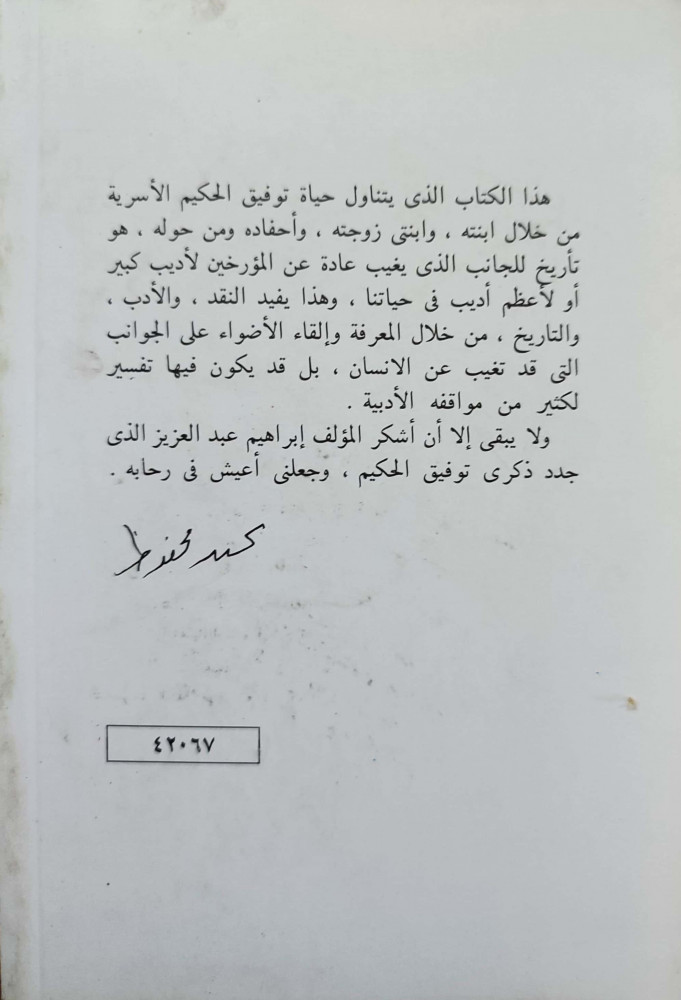 هذا الكتاب الذى يتناول حياة توفيق الحكيم الأسرية
من خلال ابنته ، وابنتى زوجته ، وأحفاده ومن حوله ، هو
تأريخ للجانب الذى يغيب عادة عن المؤرخين لأديب كبير
أو لأعظم أديب فى حياتنا ، وهذا يفيد النقد ، والأدب ،
والتاريخ ، من خلال المعرفة وإلقاء الأضواء على الجوانب
التى قد تغيب عن الانسان ، بل قد يكون فيها تفسير
لكثير من مواقفه الأدبية .
ولا يبقى إلا أن أشكر المؤلف إبراهيم عبد العزيز الذى
جدد ذكرى توفيق الحكيم ، وجعلنى أعيش فى رحابه .
نجيب محفوظ
٤٢٠٦٧